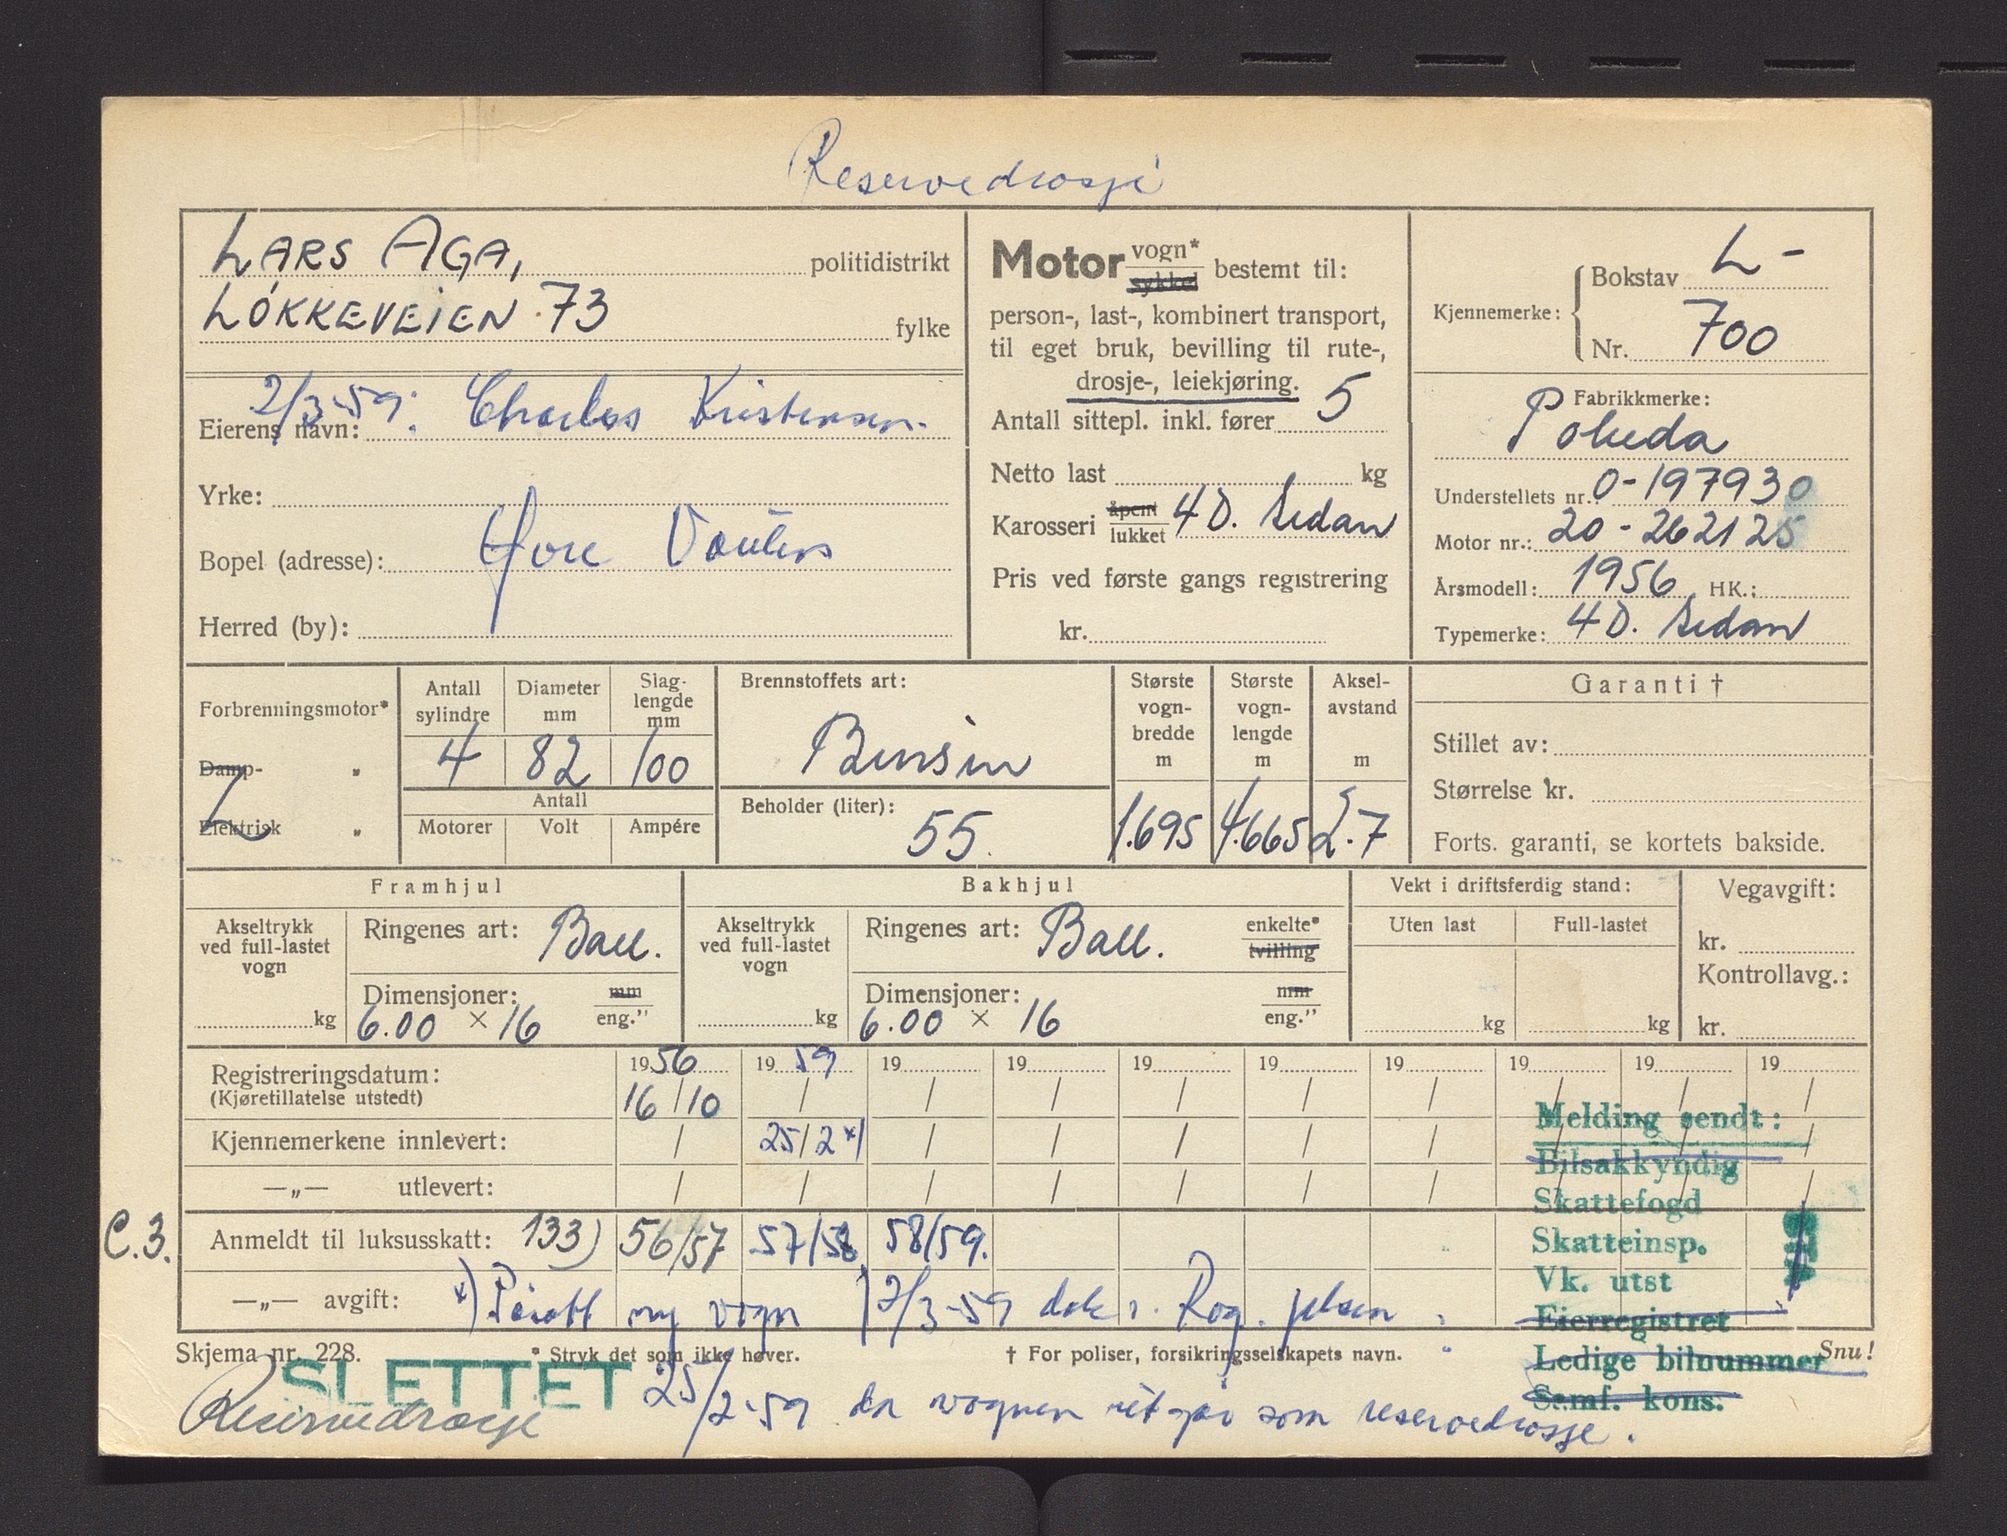 Reservedrosje
LARS AGA, politidistrikt
LÖKKEVEIEN 73 fylke
2/3-59: Charles Kristensen.
Eierens navn:
Yrke:
Bopel (adresse):
Herred (by):
Motor vogn* sykkel bestemt til:
person-, last-, kombinert transport,
til eget bruk, bevilling til rute-,
drosje-, leiekjøring.
Antall sittepl. inkl. fører 5
Netto last kg
Karosseri åpent lukket 4 D. Sedan
Pris ved første gangs registrering
kr.
Kjennemerke: Bokstav L-
Nr. 700
Fabrikkmerke:
Pobeda
Understellets nr. 0-197930
Motor nr.: 20-262125
Årsmodell: 1956 HK.:
Typemerke: 4 D. Sedan
Forbrenningsmotor*
Damp- "
Elektrisk "
Antall sylindre Diameter mm Slaglengde mm
4 82 100
Antall
Motorer Volt Ampére
Brennstoffets art:
Bensin
Beholder (liter):
55
Største vognbredde m Største vognlengde m Akselavstand m
1.695 4.665 2.7
Garanti †
Stillet av:
Størrelse kr.
Forts. garanti, se kortets bakside.
Framhjul
Akseltrykk ved full-lastet vogn
kg
Ringenes art: Ball.
Dimensjoner: mm eng."
6.00 × 16
Bakhjul
Akseltrykk ved full-lastet vogn
kg
Ringenes art: Ball. enkelte* tvilling
Dimensjoner: mm eng."
6.00 × 16
Vekt i driftsferdig stand:
Uten last Full-lastet
kg kg
Vegavgift:
kr.
Kontrollavg.:
kr.
Registreringsdatum: 1956 1959 19 19 19 19 19 19 19 19
(Kjøretillatelse utstedt) 16/10 / / / / / / / / /
Kjennemerkene innlevert: / 25/2 *) / / / / / / / /
—„— utlevert: / / / / / / / / / /
C.3. Anmeldt til luksusskatt: 133) 56/57 57/58 58/59.
—„— avgift: *) Påsatt ny vogn 2/3-59
Melding sendt:
Bilsakkyndig
Skattefogd
Skatteinsp.
Vk. utst
Eierregistret
Ledige bilnummer
Samf. kons.
Skjema nr. 228. * Stryk det som ikke høver. † For poliser, forsikringsselskapets navn. Snu!
SLETTET
Reservedrosje 25/2-59 da vognen går som reservedrosje.